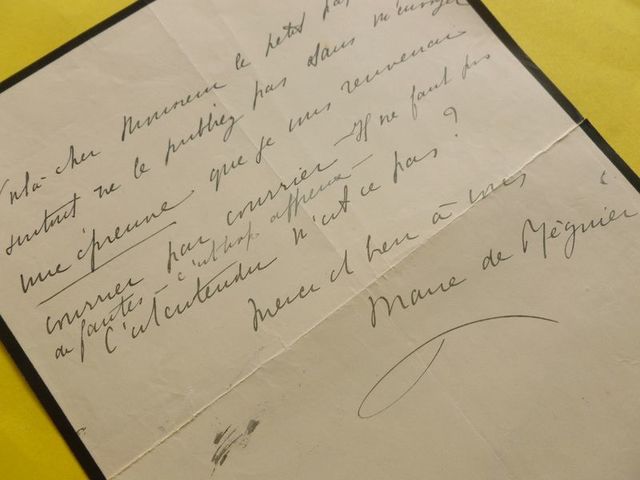 Voilà cher Monsieur le petit
surtout ne le publiez pas sans m'envoyer
une épreuve que je vous renverrai
courrier par courrier – Il ne faut pas
de fautes – c'est trop affreux –
C'est entendu n'est ce pas ?
Merci et bien à vous
Marie de Régnier